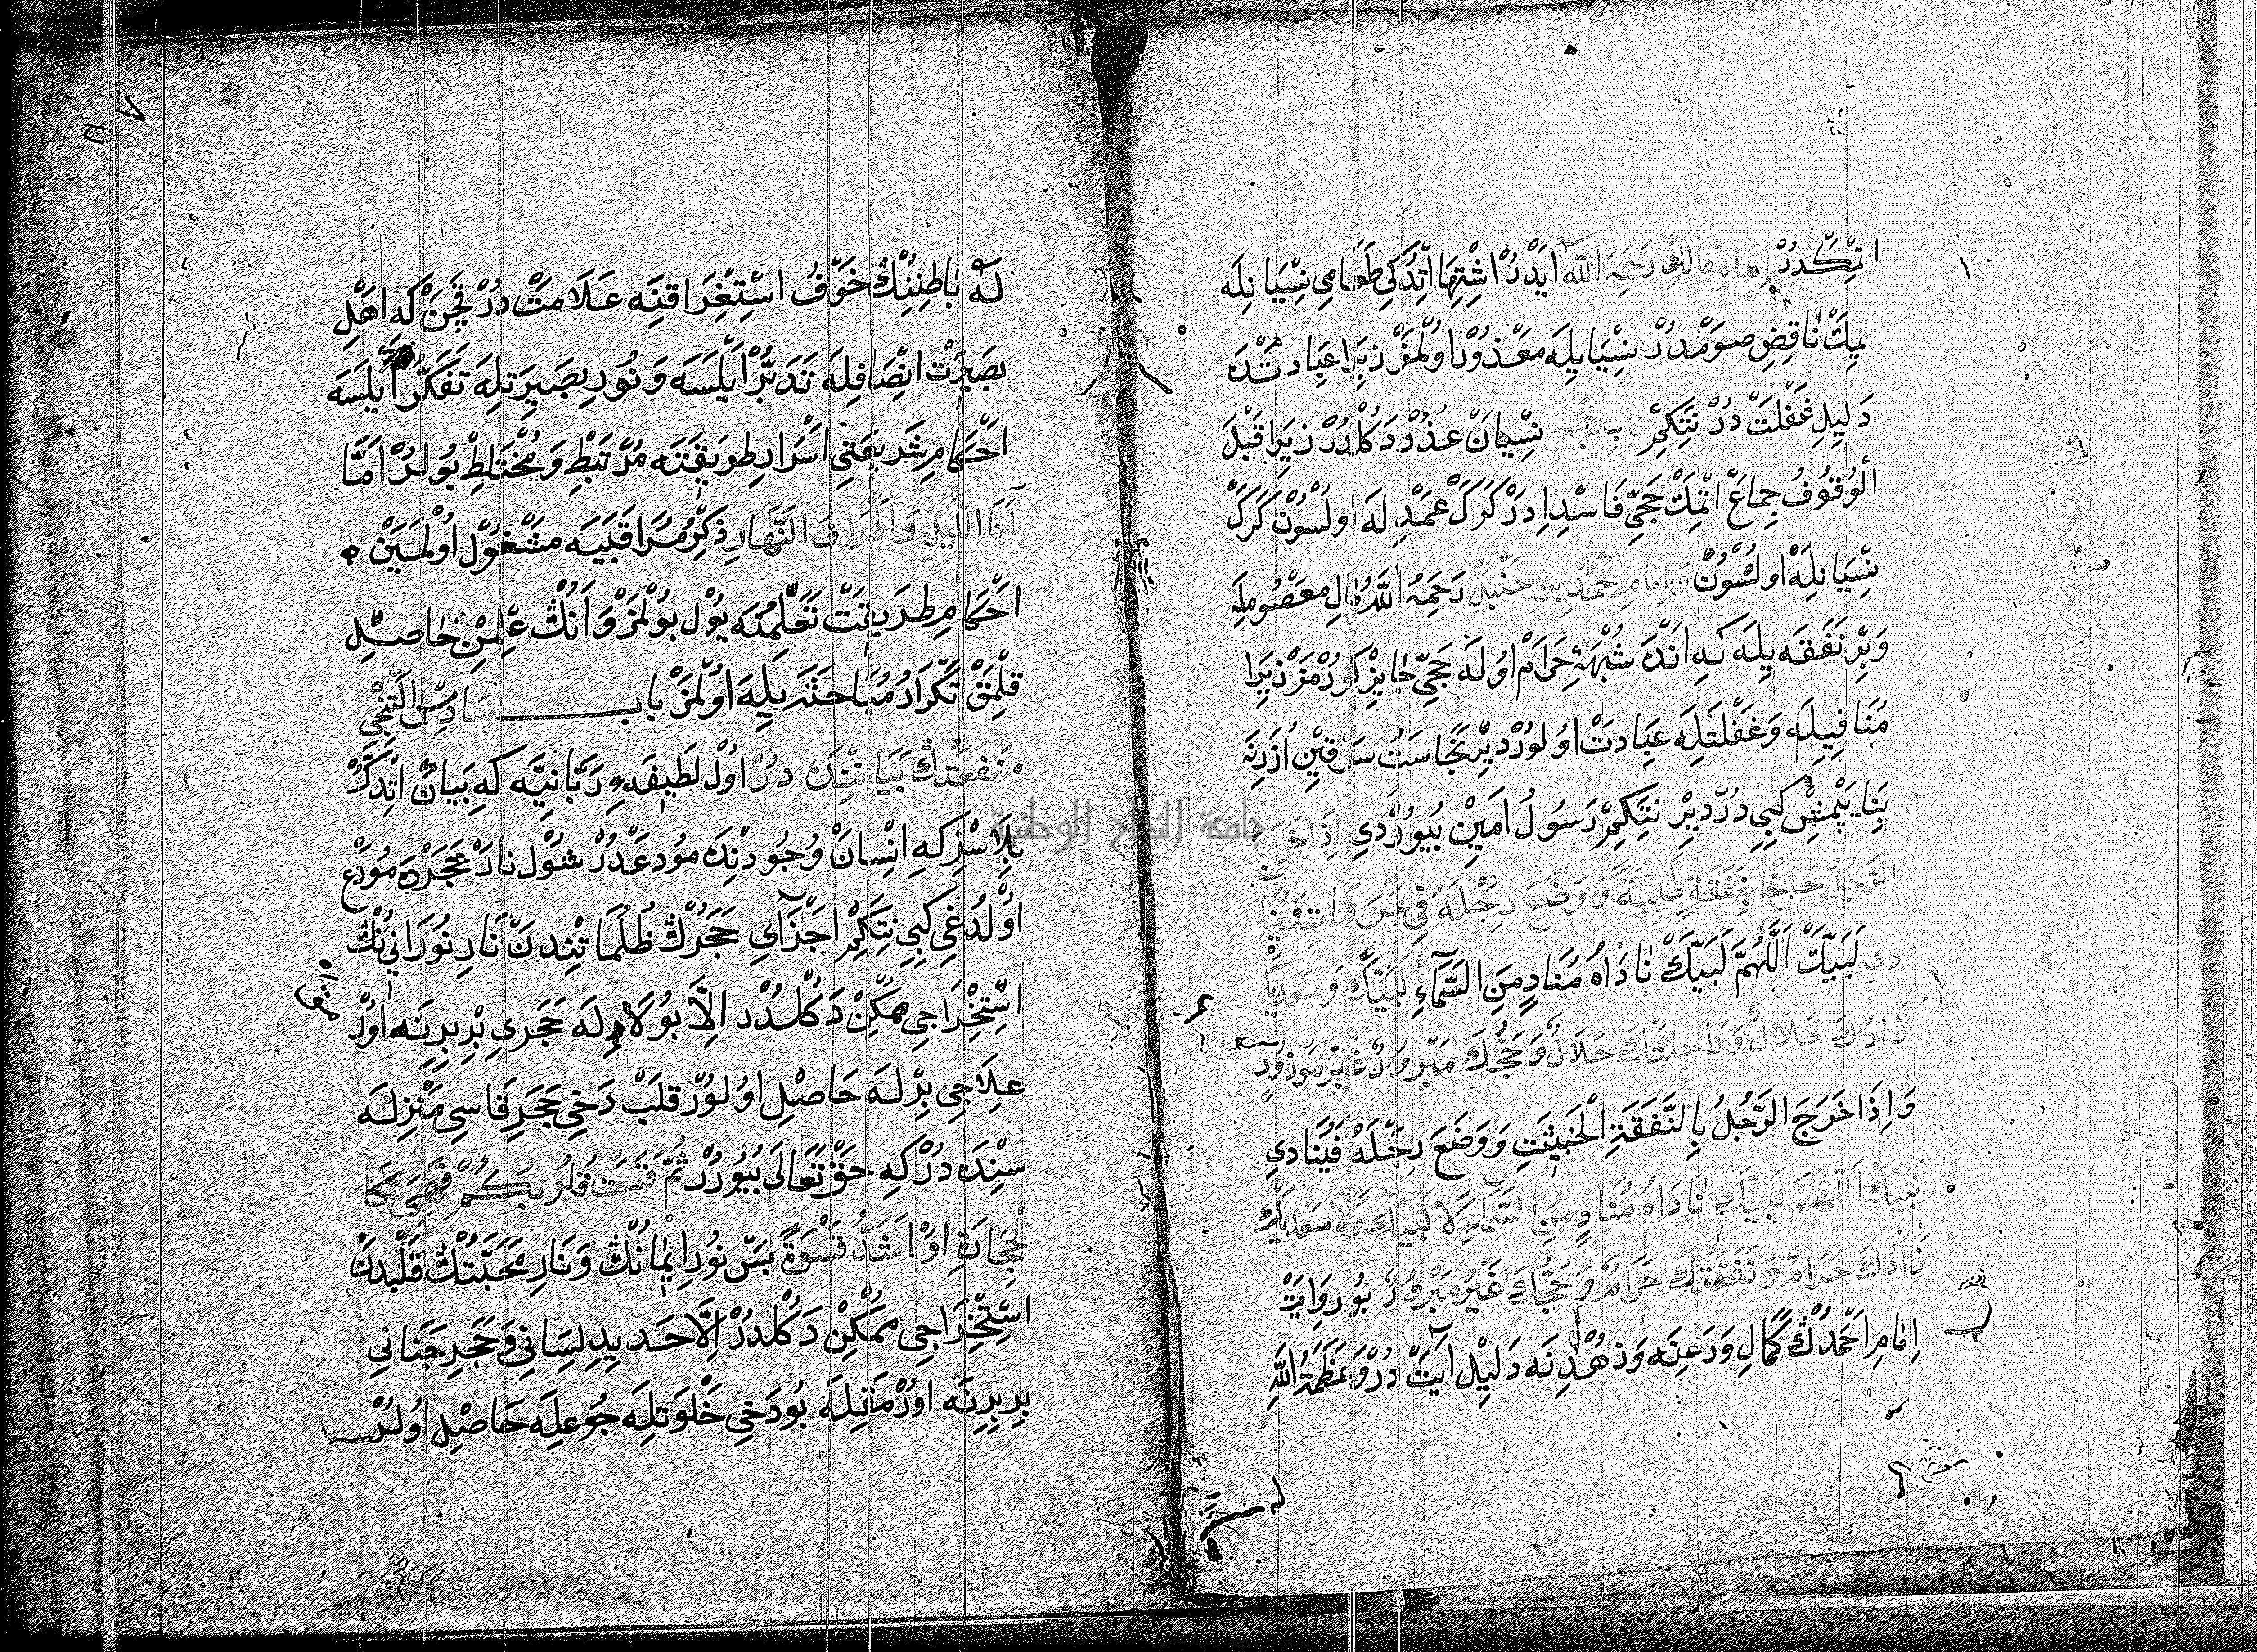 اتمكدر امام مالك رحمه الله ايدر اشتها اتدكي طعامي نسيانله
يمك ناقض صومدر نسيايله معذور اولمز زيرا عبادتده
دليل غفلت در نتكم باب حجده نسيان عذر دكلدر زيرا قبل
الوقوف جماع اتمك حجي فاسد ادر كرك عمديله اولسون كرك
نسيانله اولسون وامام احمد بن حنبل رحمه الله مال معصومله
وبر نفقه يله كه انده شبهۀ حرام اوله حجي جايز كورمز زيرا
منافيله وغفلتله عبادت اولور دير نجاست سرقين اوزرنه
بنا يپمش كبي در دير نتكم رسول امين بيوردي اذا خرج
الرجل حاجا بنفقة طيبة ووضع رجله في
دي لبيك اللهم لبيك ناداه مناد من السماء لبيك وسعديك
زادك حلال وراحلتك حلال وحجك مبرور غير موزور
واذا خرج الرجل بالنفقة الخبيثت ووضع رجله فينادي
لبيك اللهم لبيك ناداه مناد من السماء لا لبيك ولا سعديك
زادك حرام ونفقتك حرام وحجك غير مبرور بو روايت
امام احمدك كمال ورعنه وزهدنه دليل آيت در وعظمة الله
له باطننك خوف استغراقنه علامت در قچن كه اهل
بصيرت انصافله تدبر ايلسه ونور بصيرتله تفكر ايلسه
احكام شريعتي اسرار طريقته مرتبط ومختلط بولر اما
آنا الليل واطراف النهار ذكر مراقبيه مشغول اولمين
احكام طريقت تعلمنه يول بولمز وانك علمن حاصل
قلمق تكرار مباحثه يله اولمز باب سادس القنجي
منفعتك بياننده در اول لطيفۀ ربانيه كه بيان اتدكر
بلاسز كه انسان وجودنده مودعدر شول نار حجرده مودع
اولدغي كبي نتكم اجزاي حجرك ظلماتندن نار نورانينك
استخراجي ممكن دكلدر الا بولاديله حجري بربرينه اورر
علاجي برله حاصل اولور قلب دخي حجر قاسي منزله
سنده در كه حق تعالى بيورر ثم قست قلوبكم فهي كا
لحجارة او اشد قسوة بس نور ايمانك ونار محبتك قلبدن
استخراجي ممكن دكلدر الا حديد لساني وحجر جناني
بربرينه اورمغله بو دخي خلوتله جوعله حاصل اولر
جامعة النجاح الوطنية